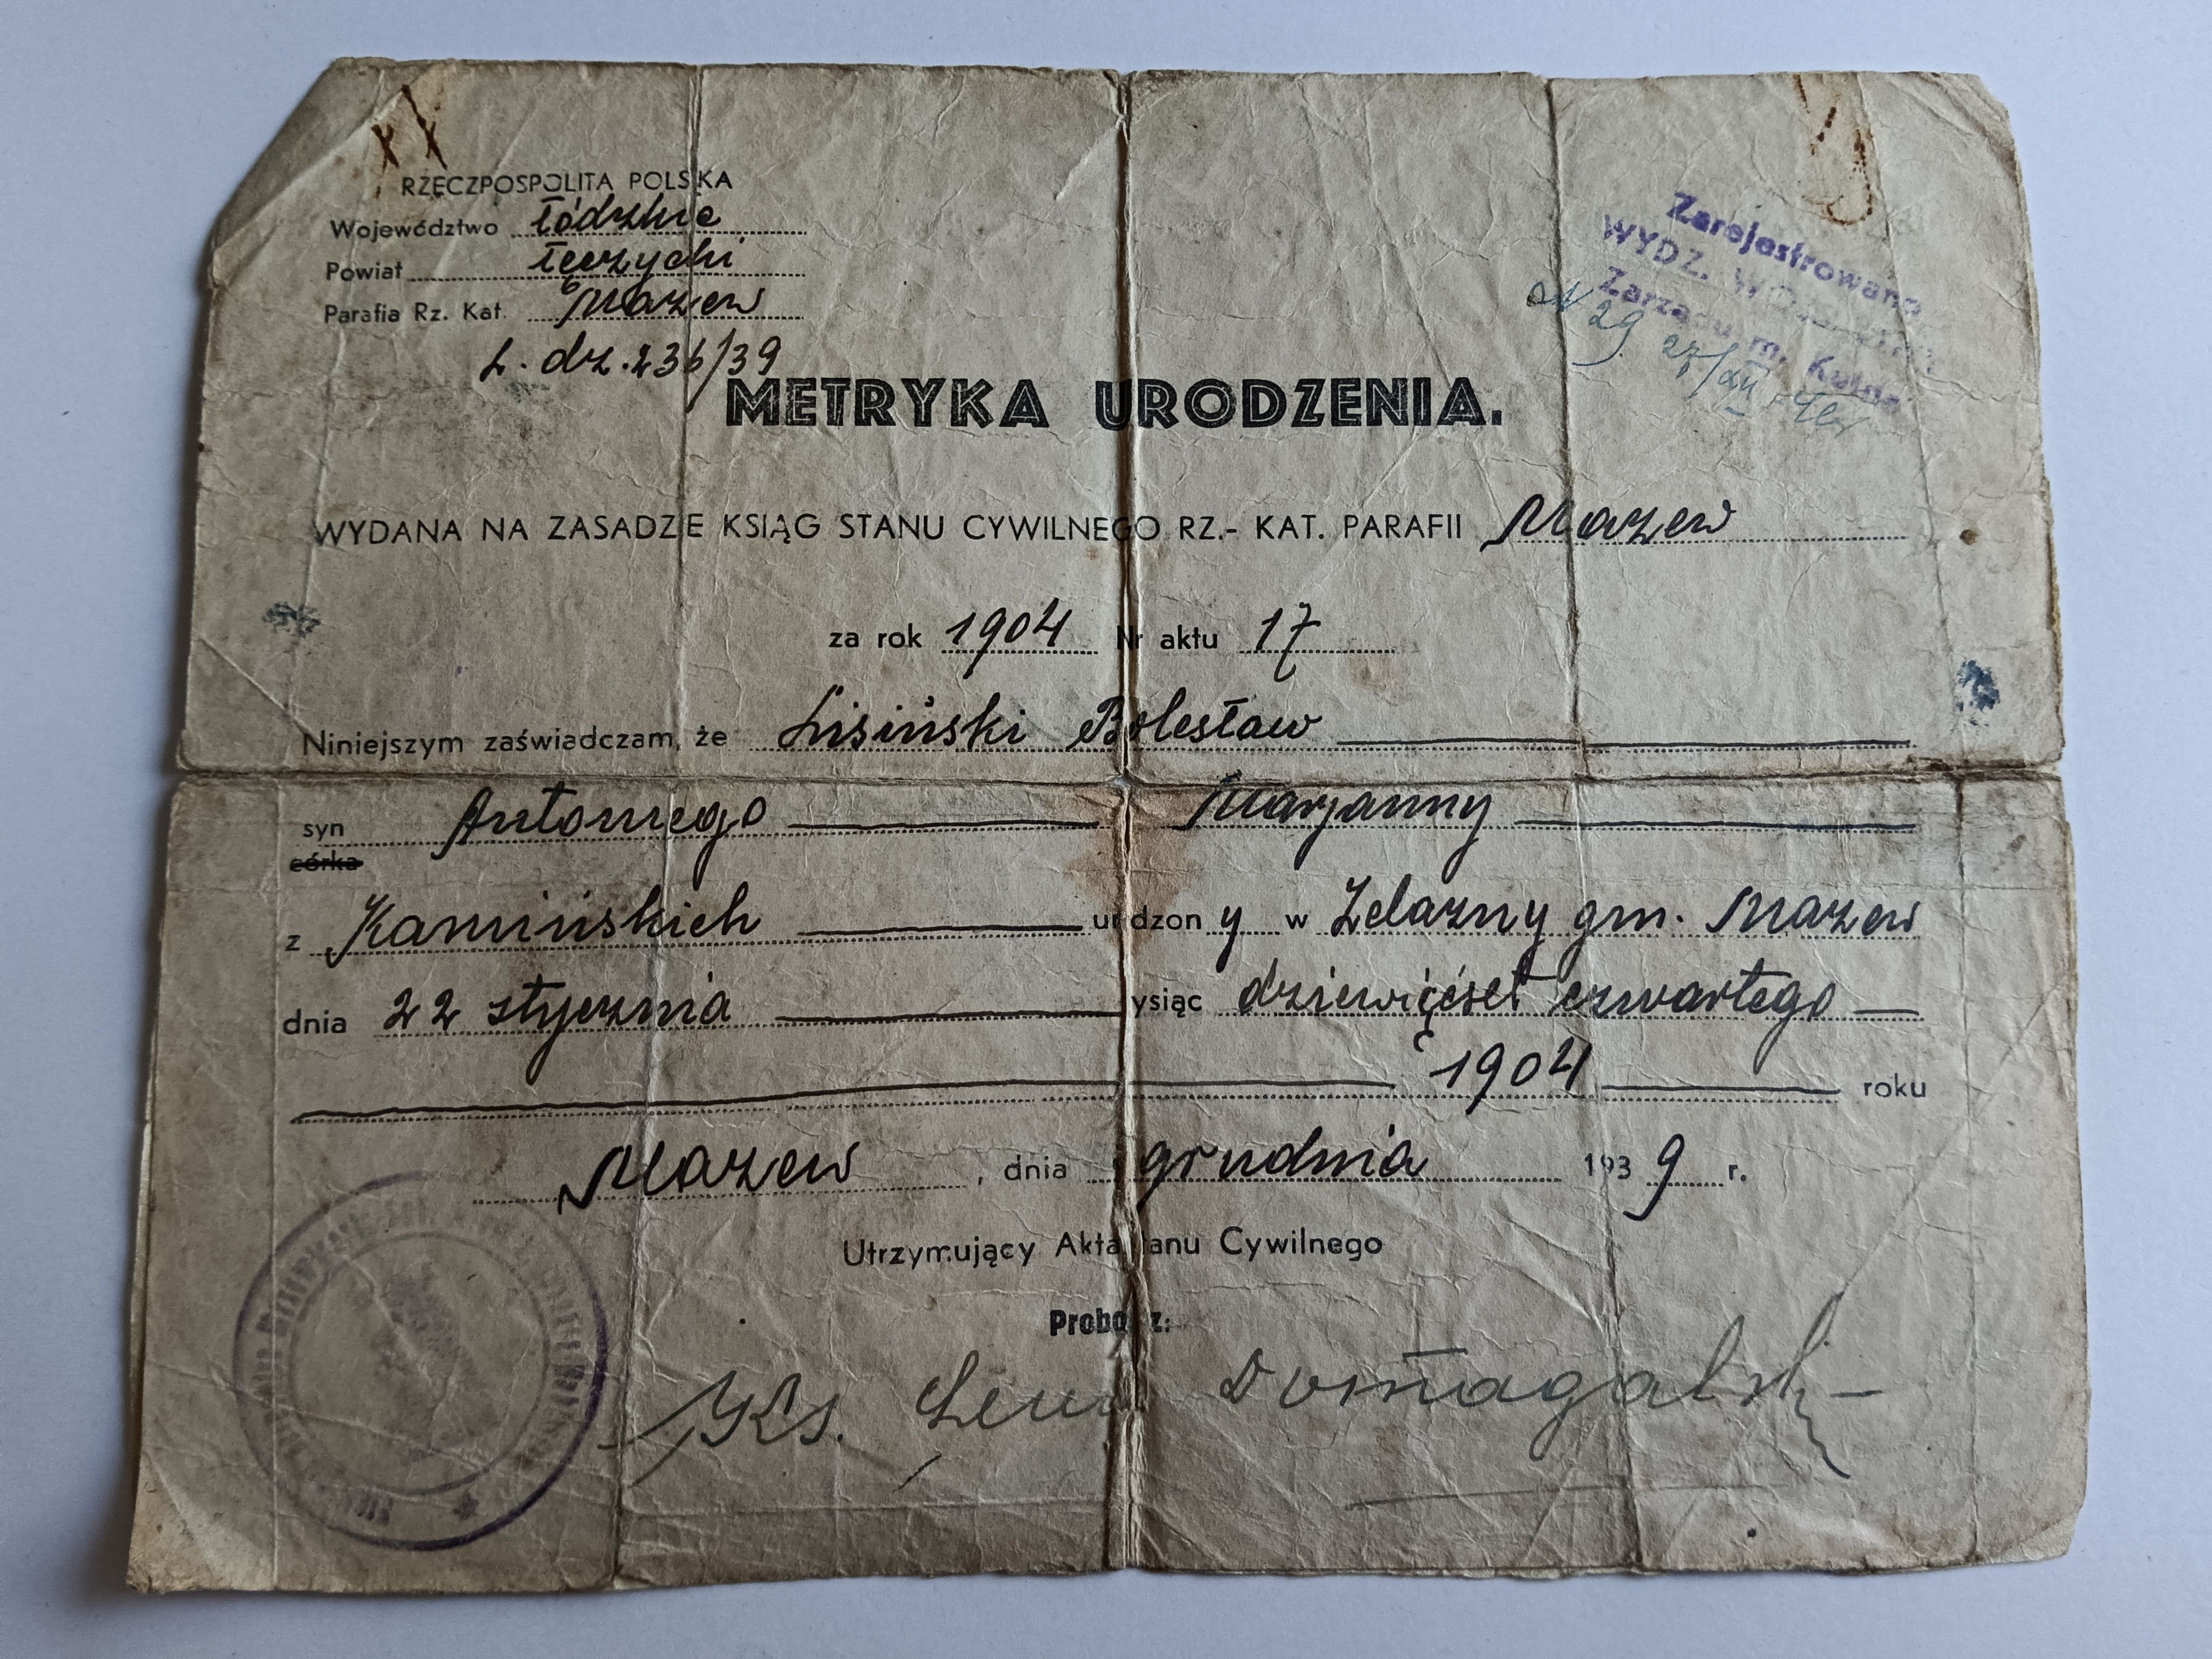 RZECZPOSPOLITA POLSKA
Województwo łódzkie
Powiat łęczycki
Parafia Rz. Kat. Mazew
L. dz. 236/39
Zarejestrowano
WYDZ.
Zarządu m. Kutna
N 29 27/XII
METRYKA URODZENIA.
WYDANA NA ZASADZIE KSIĄG STANU CYWILNEGO RZ.- KAT. PARAFII Mazew
za rok 1904 Nr aktu 17
Niniejszym zaświadczam, że Lisiński Bolesław
syn Antoniego Marjanny
córka
z Kamińskich urodzony w Żelazny gm. Mazew
dnia 22 stycznia ysiąc dziewięćset czwartego
1904 roku
Mazew, dnia grudnia 1939 r.
Utrzymujący Akta Stanu Cywilnego
Proboszcz:
Ks. Domagalski